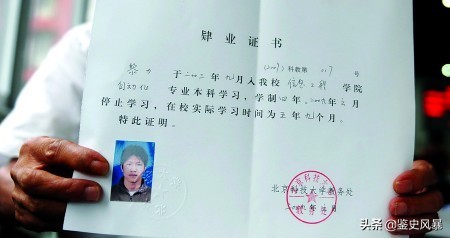 肄业证书
(2009)科教第 007 号
黎力 于二〇〇三年九月入我校信息工程学院
专业本科学习，学制四年。二〇〇九年六月
停止学习，在校实际学习时间为五年九个月。
特此证明。
北京科技大学教务处
二〇〇九年 月
头条 @鉴史风暴